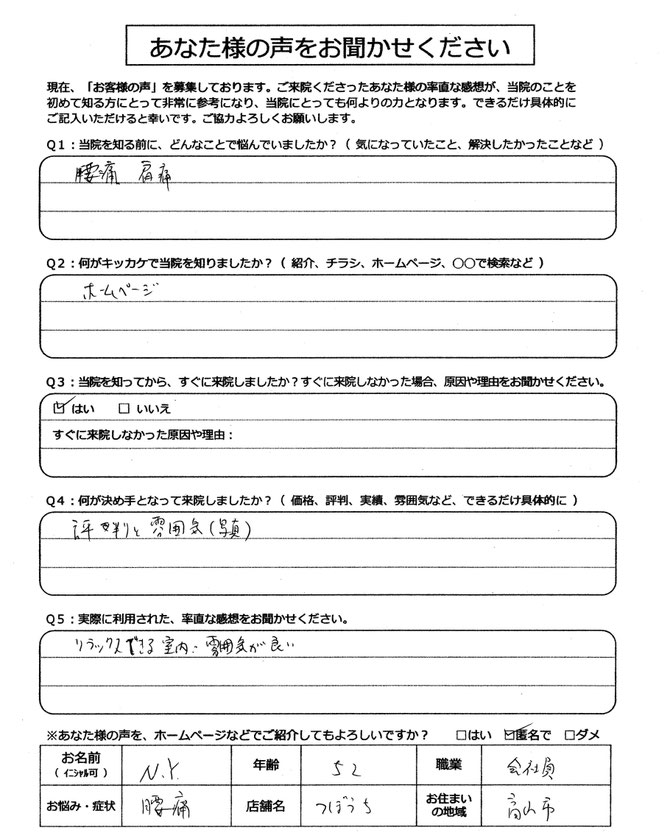 あなた様の声をお聞かせください
現在、「お客様の声」を募集しております。ご来院くださったあなた様の率直な感想が、当院のことを
初めて知る方にとって非常に参考になり、当院にとっても何よりの力となります。できるだけ具体的に
ご記入いただけると幸いです。ご協力よろしくお願いします。
Q1：当院を知る前に、どんなことで悩んでいましたか？（ 気になっていたこと、解決したかったことなど ）
腰痛 肩痛
Q2：何がキッカケで当院を知りましたか？（ 紹介、チラシ、ホームページ、〇〇で検索など ）
ホームページ
Q3：当院を知ってから、すぐに来院しましたか？すぐに来院しなかった場合、原因や理由をお聞かせください。
☑はい □ いいえ
すぐに来院しなかった原因や理由：
Q4：何が決め手となって来院しましたか？（ 価格、評判、実績、雰囲気など、できるだけ具体的に ）
評判と雰囲気(写真)
Q5：実際に利用された、率直な感想をお聞かせください。
リラックスできる室内、雰囲気が良い
※あなた様の声を、ホームページなどでご紹介してもよろしいですか？ □はい ☑匿名で □ダメ
お名前（ｲﾆｼｬﾙ可） N.Y. 年齢 52 職業 会社員
お悩み・症状 腰痛 店舗名 つぼうち お住まいの地域 高山市